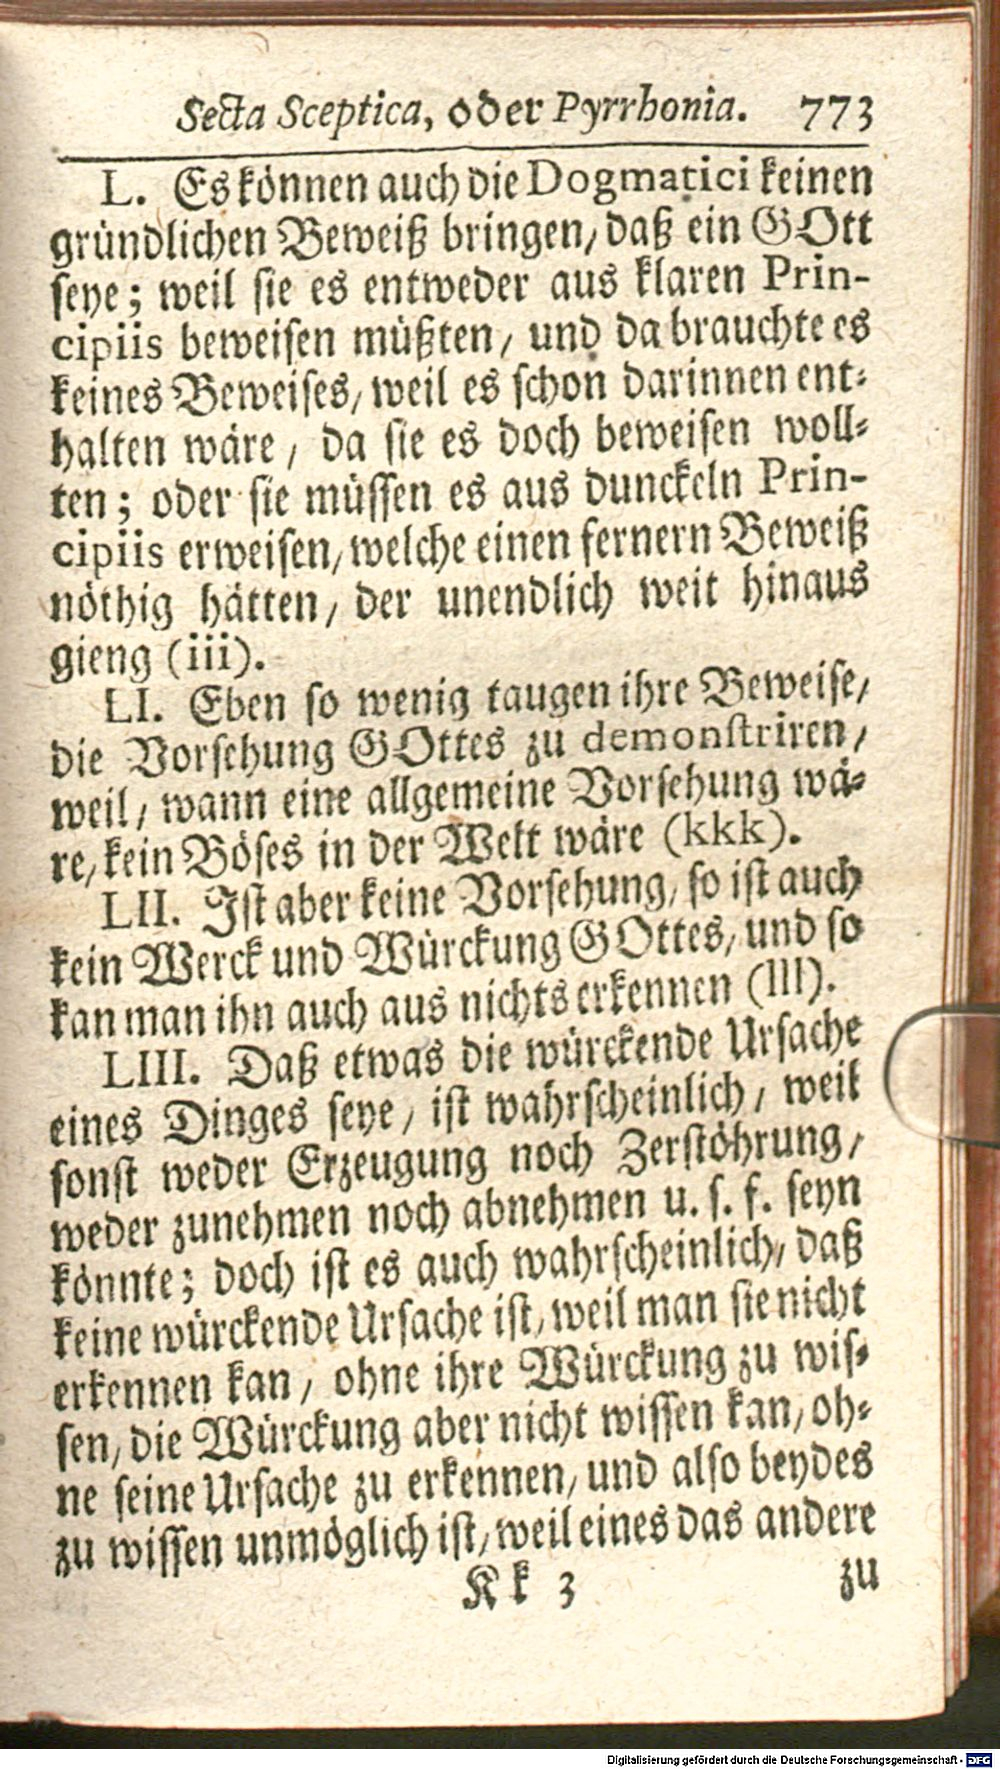 Secta Sceptica, oder Pyrrhonia. 773
L. Es können auch die Dogmatici keinen
gründlichen Beweiß bringen, daß ein GOtt
seye; weil sie es entweder aus klaren Prin-
cipiis beweisen müßten, und da brauchte es
keines Beweises, weil es schon darinnen ent-
halten wäre, da sie es doch beweisen woll-
ten; oder sie müssen es aus dunckeln Prin-
cipiis erweisen, welche einen fernern Beweiß
nöthig hätten, der unendlich weit hinaus
gieng (iii).
LI. Eben so wenig taugen ihre Beweise,
die Vorsehung GOttes zu demonstriren,
weil, wann eine allgemeine Vorsehung wä-
re, kein Böses in der Welt wäre (kkk).
LII. Ist aber keine Vorsehung, so ist auch
kein Werck und Würckung GOttes, und so
kan man ihn auch aus nichts erkennen (lll).
LIII. Daß etwas die würckende Ursache
eines Dinges seye, ist wahrscheinlich, weil
sonst weder Erzeugung noch Zerstöhrung,
weder zunehmen noch abnehmen u. s. f. seyn
könnte; doch ist es auch wahrscheinlich, daß
keine würckende Ursache ist, weil man sie nicht
erkennen kan, ohne ihre Würckung zu wis-
sen, die Würckung aber nicht wissen kan, oh-
ne seine Ursache zu erkennen, und also beydes
zu wissen unmöglich ist, weil eines das andere
Kk 3 zu
Digitalisierung gefördert durch die Deutsche Forschungsgemeinschaft - DFG